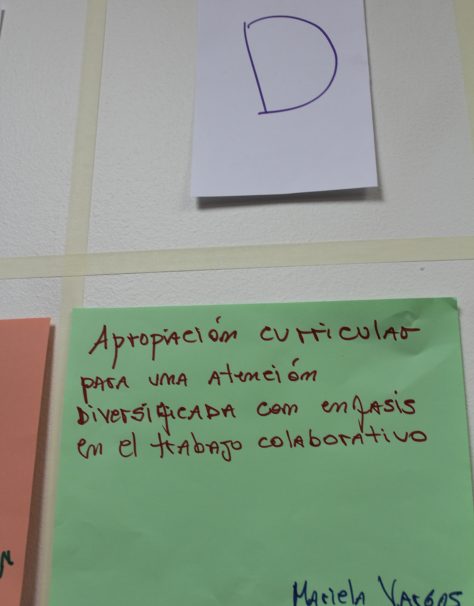 D
Apropiación curricular
para una atención
Diversificada con enfasis
en el trabajo colaborativo
Mariela Vargas